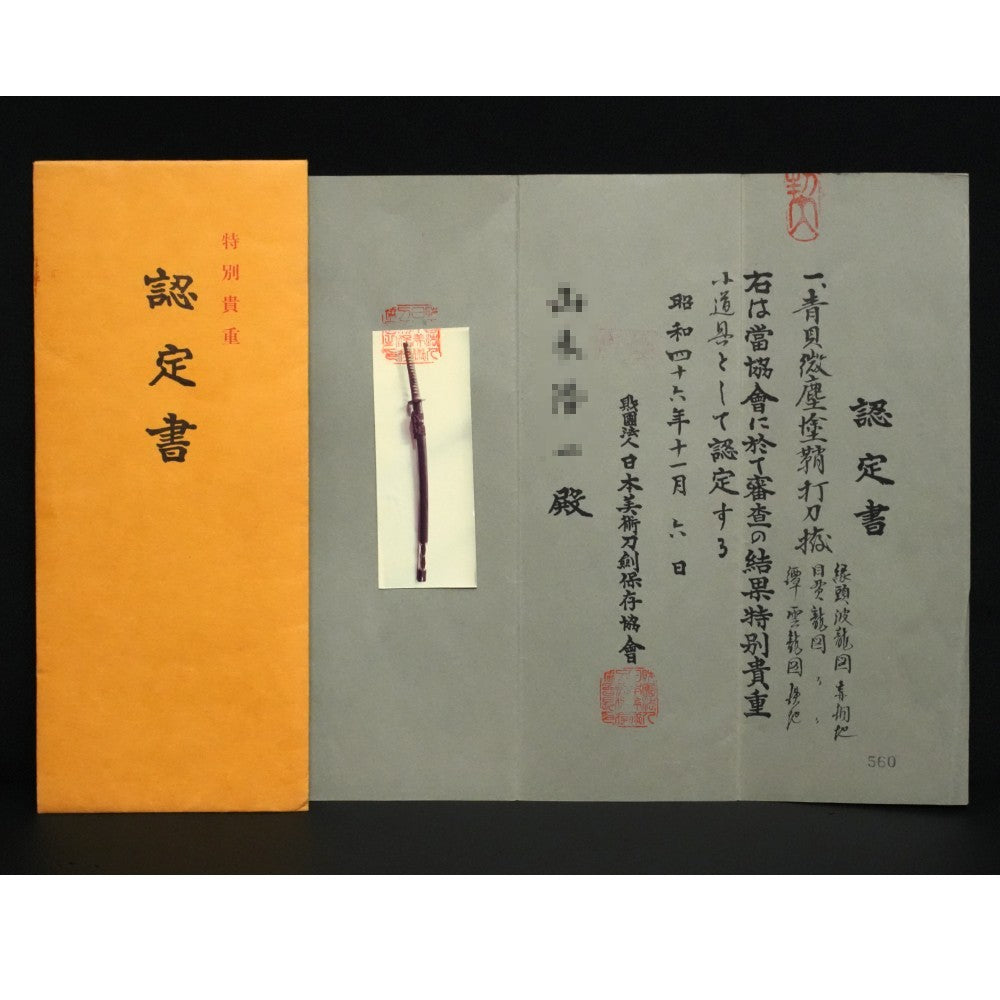 特別貴重
認定書
認定書
一、青貝微塵塗鞘打刀拵
縁頭波龍図赤銅地
目貫龍図〃〃
鐔雲龍図鉄地
右は當協會に於て審査の結果特別貴重
小道具として認定する
昭和四十六年十一月六日
財團法人日本美術刀劍保存協會
殿
560